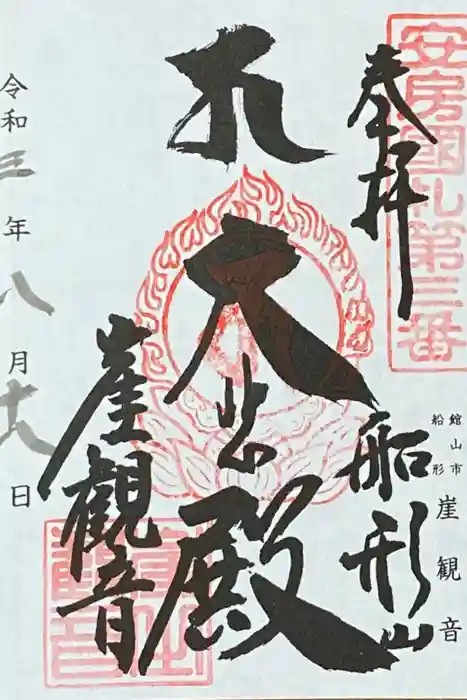 安房國札第三番
奉拝
船形山
大悲殿
崖觀音
令和三年八月十八日
館山市
船形
崖観音